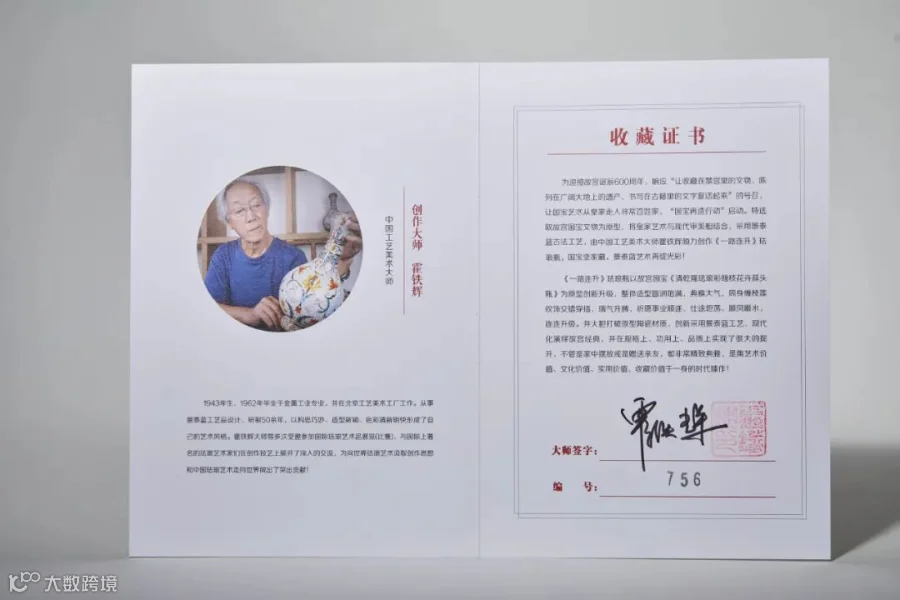 创作大师 霍铁辉
中国工艺美术大师
1943年生，1962年毕业于金属工业专业，并在北京工艺美术工厂工作。从事
景泰蓝工艺品设计、研制50余年，以构思巧妙、造型新颖、色彩清新明快形成了自
己的艺术风格。霍铁辉大师曾多次受邀参加国际珐琅艺术品展览(比赛)，与国际上著
名的珐琅艺术家们在创作技艺上展开了深入的交流，为向世界珐琅艺术汲取创作思想
和中国珐琅艺术走向世界做出了突出贡献！
收藏证书
为迎接故宫诞辰600周年，响应“让收藏在禁宫里的文物、陈
列在广阔大地上的遗产、书写在古籍里的文字都活起来”的号召，
让国宝艺术从皇家走入寻常百姓家，“国宝再造行动”启动。特选
取故宫国宝文物为原型，将皇家艺术与现代审美相结合，采用景泰
蓝古法工艺，由中国工艺美术大师霍铁辉倾力创作《一路连升》珐
琅瓶。国宝皇家藏，景泰蓝艺术再绽光彩！
《一路连升》珐琅瓶以故宫国宝《清乾隆珐琅彩缠枝花卉蒜头
瓶》为原型创新升级，整体造型圆润饱满，典雅大气。瓶身缠枝莲
纹饰交错穿插，瑞气升腾，祈愿事业顺遂、仕途坦荡、顺风顺水，
连连升级。并大胆打破原型陶瓷材质，创新采用景泰蓝工艺，现代
化演绎故宫经典，并在规格上、功用上、品质上实现了很大的提
升，不管是家中摆放或是赠送亲友，都非常精致典雅，是集艺术价
值、文化价值、实用价值、收藏价值于一身的时代臻作！
大师签字：
编 号： 756
大数跨境